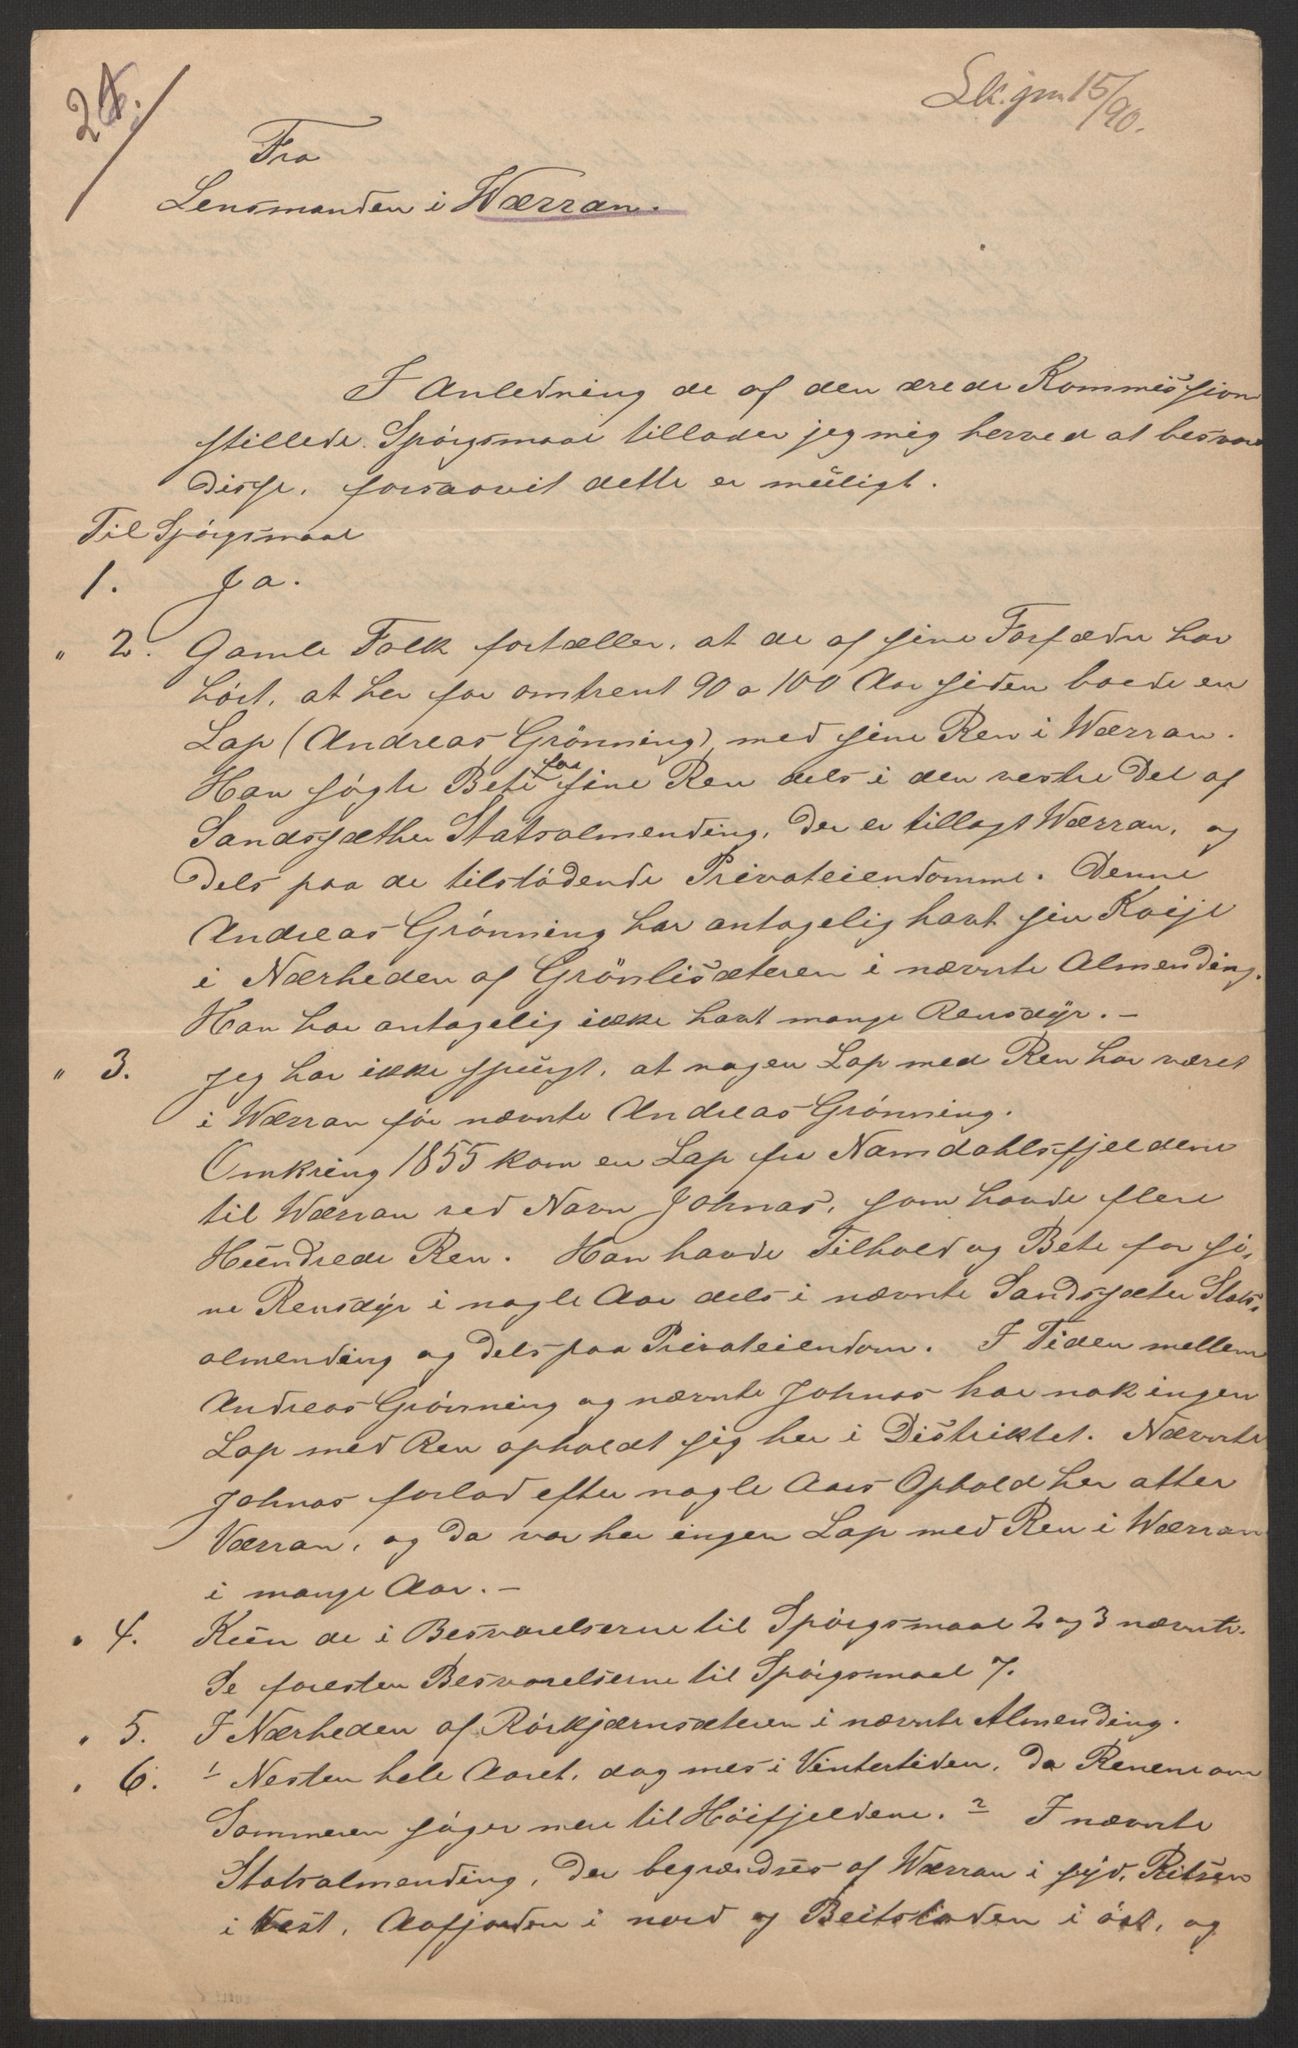 24.
Lk. jnr 15/90.
Fra
Lensmanden i Wærran.
I Anledning de af den ærede Kommission
stillede Spörgsmaal tillader jeg mig herved at besvare
disse, forsaavit dette er muligt.
Til Spörgsmaal
1. Ja.
" 2. Gamle Folk fortæller, at de af sine Forfædre har
hört, at her for omtrent 90 a 100 Aar siden boede en
Lap (Andreas Grönning) med sine Ren i Wærran.
Han sögte Bete for sine Ren dels i den vestre Del af
Sandssæther Statsalmending, der er tillagt Wærran, og
dels paa de tilstödende Privateiendomme. Denne
Andreas Grönning har antagelig havt sin Koije
i Nærheden af Grönlisæteren i nævnte Almending.
Han har antagelig ikke havt mange Rensdyr. -
" 3. Jeg har ikke spurgt, at nogen Lap med Ren har været
i Wærran för nævnte Andreas Grönning.
Omkring 1855 kom en Lap fra Namdahlsfjeldene
til Wærran ved Navn Johnas, som havde flere
Hundrede Ren. Han havde Tilhold og Bete for si-
ne Rensdyr i nogle Aar dels i nævnte Sandssæter Stats-
almending og dels paa Privateiendom. I Tiden mellem
Andreas Grönning og nævnte Johnas har nok ingen
Lap med Ren opholdt sig her i Distriktet. Nævnte
Johnas forlod efter nogle Aars Ophold her atter
Værran, og da var her ingen Lap med Ren i Wærran
i mange Aar. -
" 4. Kun de i Besvarelserne til Spörgsmaal 2 og 3 nævnte.
Se foresten Besvarelserne til Spörgsmaal 7.
" 5. I Nærheden af Rörkjærnsæteren i nævnte Almending.
" 6. 1 Nesten hele Aaret, dog mest i Vintertiden, da Renene om
Sommeren söger mere til Höifjeldene. 2 I nævnte
Statsalmending, der begrændses af Wærran i syd, Ritsen
i Vest, Aafjorden i nord og Beitstaden i öst, og